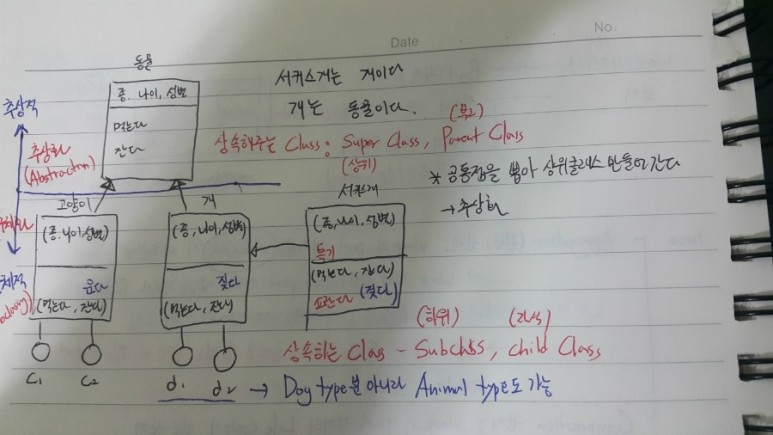 Date
No.
동물
종, 나이, 성별
먹는다
잔다
서커스개는 개이다
개는 동물이다.
(부모)
상속해주는 Class : Super Class, Parent Class
(상위)
추상적
추상화
(Abstraction)
* 공통점을 뽑아 상위클래스 만들어 간다
→ 추상화
고양이
(종, 나이, 성별)
운다
(먹는다, 잔다)
C1
C2
개
(종, 나이, 성별)
짖다
(먹는다, 잔다)
d1
d2
서커스개
(종, 나이, 성별)
특기
(먹는다, 잔다)
(짖다)
(하위)
(자식)
상속하는 Class - Subclass, child Class
→ Dog type뿐 아니라 Animal type도 가능